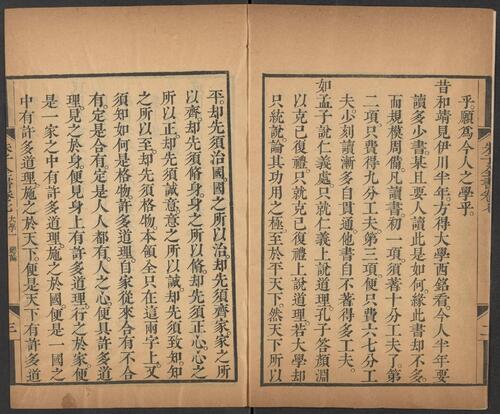 乎願為今人之學乎
昔和靖見伊川半年方得大學西銘看今人半年要
讀多少書某且要人讀此是如何緣此書却不多
而規模周備凡讀書初一項須著十分工夫了第
二項只費得九分工夫第三項便只費六七分工
夫少刻讀漸多自貫通他書自不著得多工夫
如孟子說仁義處只就仁義上說道理孔子答顏淵
以克己復禮只就克己復禮上說道理若大學却
只統說論其功用之極至於平天下然天下所以
平却先須治國國之所以治却先須齊家家之所
以齊却先須脩身身之所以脩却先須正心心之
所以正却先須誠意意之所以誠却先須致知知
之所以至却先須格物本領全只在這兩字上又
須知如何是格物許多道理自家從來合有不合
有定是合有定是人人都有人之心便具許多道
理見之於身便見身上有許多道理行之於家便
是一家之中有許多道理施之於國便是一國之
中有許多道理施之於天下便是天下有許多道